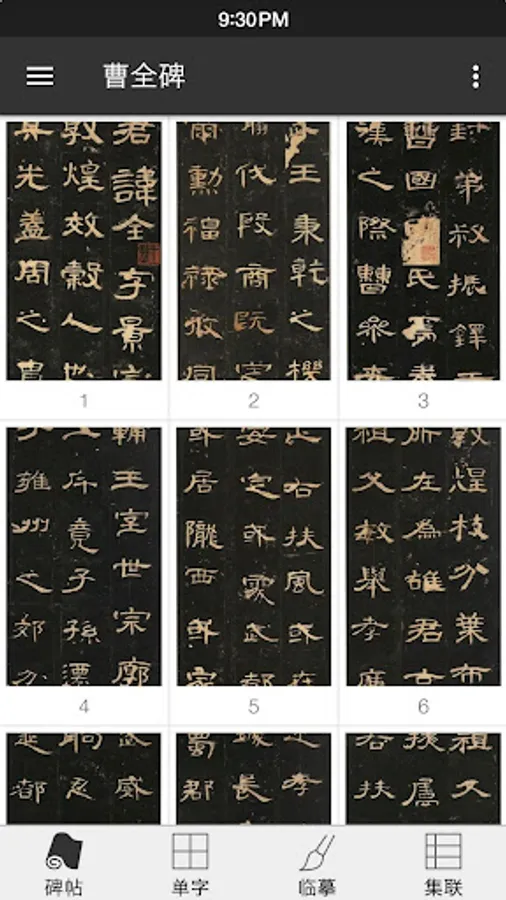 9:30PM
曹全碑
君諱全字景完
敦煌效穀人也
其先蓋周之胄
1
王秉乾之機
翦伐殷商既定
爾勳福祿攸同
2
封弟叔振鐸于
曹國因氏焉秦
漢之際曹參夾
3
輔王室世宗廓
土斥竟子孫遷
于雍州之郊分
4
止右扶風或在
安定或處武都
或居隴西或家
5
敦煌枝分葉布
所在為雄君高
祖父敏舉孝廉
6
武威
朐忍
延都
述孝
城長
蜀郡
祖父
掖屬
右扶
碑帖
单字
临摹
集联